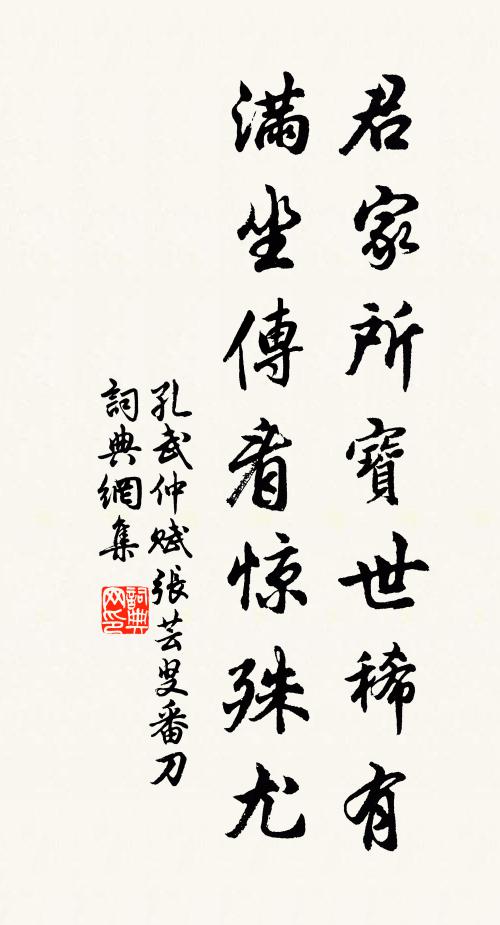 君家所寶世稀有
滿坐傳看惊殊尤
孔武仲賦張芸叟番刀
詞典網集
詞典
网印